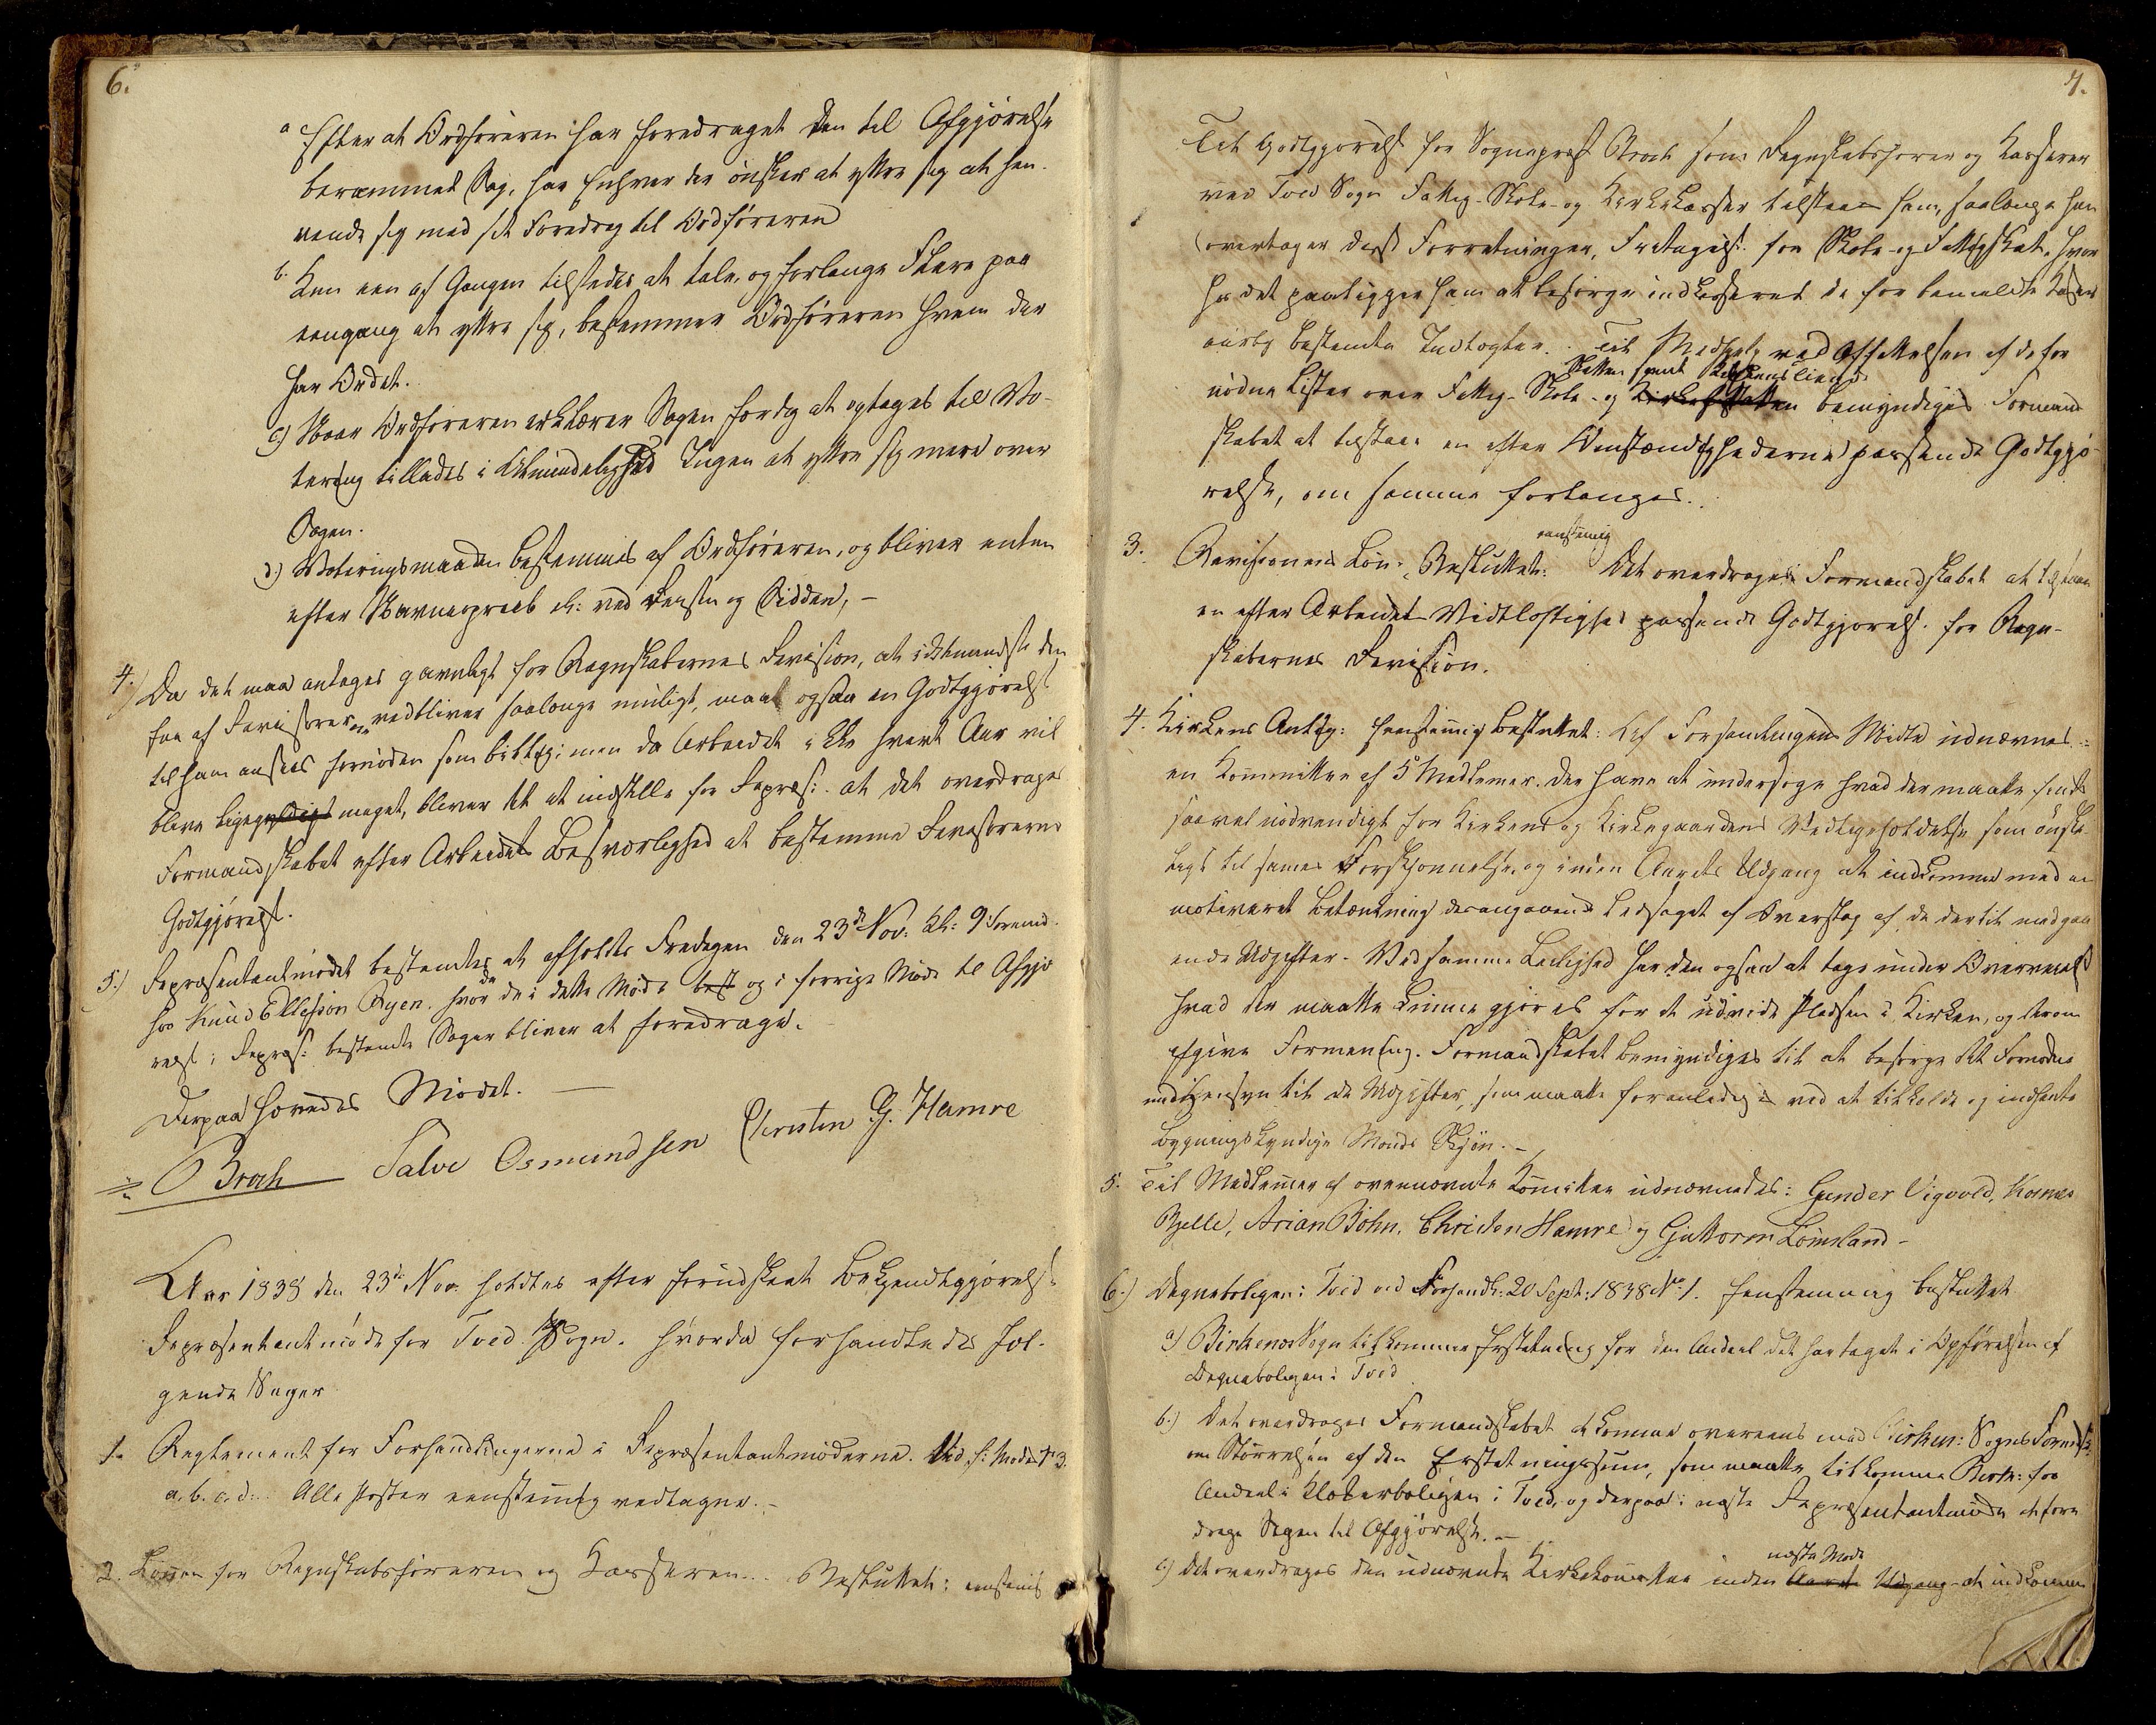 6.
a Efter at Ordføreren har foredraget den til Afgjørelse
berammede Sag, har Enhver der ønsker at yttre sig at hen-
vende sig med sit Foredrag til Ordføreren
b. Kun een af Gangen tilstedes at tale, og forlange Flere paa
eengang at yttre sig, bestemmer Ordføreren hvem der
har Ordet.
c) Naar Ordføreren erklærer Sagen færdig at optages til Vo-
tering tillades i Almindelighed Ingen at yttre sig mere over
Sagen.
d.) Voteringsmaaden bestemmes af Ordføreren, og bliver enten
efter Navneopraab el: ved Reisen og Sidden, -
4.) Da det maa antages gavnligt for Regnskabernes Revision, at idetmindste den
ene af Revisorerne vedbliver saalænge muligt, maa ogsaa en Godtgjørelse
til ham ansees fornøden som billig; men da Arbeidet ikke hvert Aar vil
blive lige meget, bliver det at indstille for Repræs: at det overdrages
Formandskabet efter Arbeidets Besværlighed at bestemme Revisorernes
Godtgjørelse.
5.) Repræsentantmødet bestemtes at afholdes Fredagen den 23de Nov: Kl: 9 Formid.
hos Knud Ellefsen Ryen. hvor da de i dette Møde best og i forrige Møde til Afgjø
relse i Repræs: bestemte Sager bliver at foredrage.
Derpaa hævedes Mødet. —
O Broch Salve Osmundsen Christen G. Hamre
Aar 1838 den 23de Nov. holdtes efter forudskeet Bekjendtgjørelse
Repræsentantmøde for Tved Sogn. hvorda forhandledes føl-
gende Sager
1. Reglement for Forhandlingerne i Repræsentantmøderne. Vid. f: Møde No 3.
a. b. c. d: Alle Poster eenstemmig vedtagne. -
2. Lønnen for Regnskabsføreren og Kasseren... Besluttet: eenstemmig
7.
Til Godtgjørelse for Sognepræst Broch som Regnskabsfører og Kasserer
ved Tved Sogns Fattig- Skole- og Kirkekasser tilstaaes ham, saalænge han
overtager disse Forretninger, Fritagelse for Skole- og Fattigskat, hvor
for det paaligger ham at besørge indkasseret de for bemeldte Kasser
aarlig bestemte Indtægter. Til Medhjelp ved Affattelsen af de for
Skatten samt Kirkens
nødne Lister over Fattig- Skole- og Kirkeskatten bemyndiges Formand
skabet at tilstaae en efter Omstændighederne passende Godtgjø-
relse, om samme forlanges.
eenstemmig
3. Revisorenes Løn. Besluttet: Det overdrages Formandskabet at tilstaae
en efter Arbeidets Vidtløftighed passende Godtgjørelse for Regn-
skabernes Revision.
4. Kirkens Anlig: Eenstemmig besluttet: Af Forsamlingens Midte udnævnes
en Kommittee af 5 Medlemmer. Der have at undersøge hvad der maatte findes
saavel nødvendigt for Kirkens og Kirkegaardens Vedligeholdelse som ønske
ligt til sammes Forskjønnelse, og inden Aarets Udgang at indkomme med en
motiveret Betænkning desangaaende ledsaget af Overslag af de dertil medgaa
ende Udgifter. Ved samme Leilighed har den ogsaa at tage under Overveielse
hvad der maatte kunne gjøres for at udvide Pladsen i Kirken, og derom
afgive Formening. Formandskabet bemyndiges til at besørge det Fornødne
med Hensyn til de Udgifter, som maatte foranlediges ved at tilkalde og indhente
bygningskyndige Mænds Skjøn. -
5. Til Medlemmer af ovennævnte Komitee udnævnedes: Gunder Vigvold, Knud
Bjelle, Arian Bøhn, Christen Hamre og Guttorm Lømsland -
6.) Degneboligen i Tved vid Forhandl: 20 Sept: 1838 No 1. Eenstemmig besluttet
a) Birkenæs Sogn tilkommer Erstatning for den Andeel det har taget i Opførelsen af
Degneboligen i Tved
b.) Det overdrages Formandskabet at komme overeens med Birken: Sogns Formdsk:
om Størrelsen af den Erstatningssum, som maatte tilkomme Birk: for
Andeel i Klokkerboligen i Tved, og derpaa i næste Repræsentantmøde at fore
drage Sagen til Afgjørelse. —
næste Møde
c) Det overdrages den udnævnte Kirkekomitee inden Aarets Udgang at indkomme